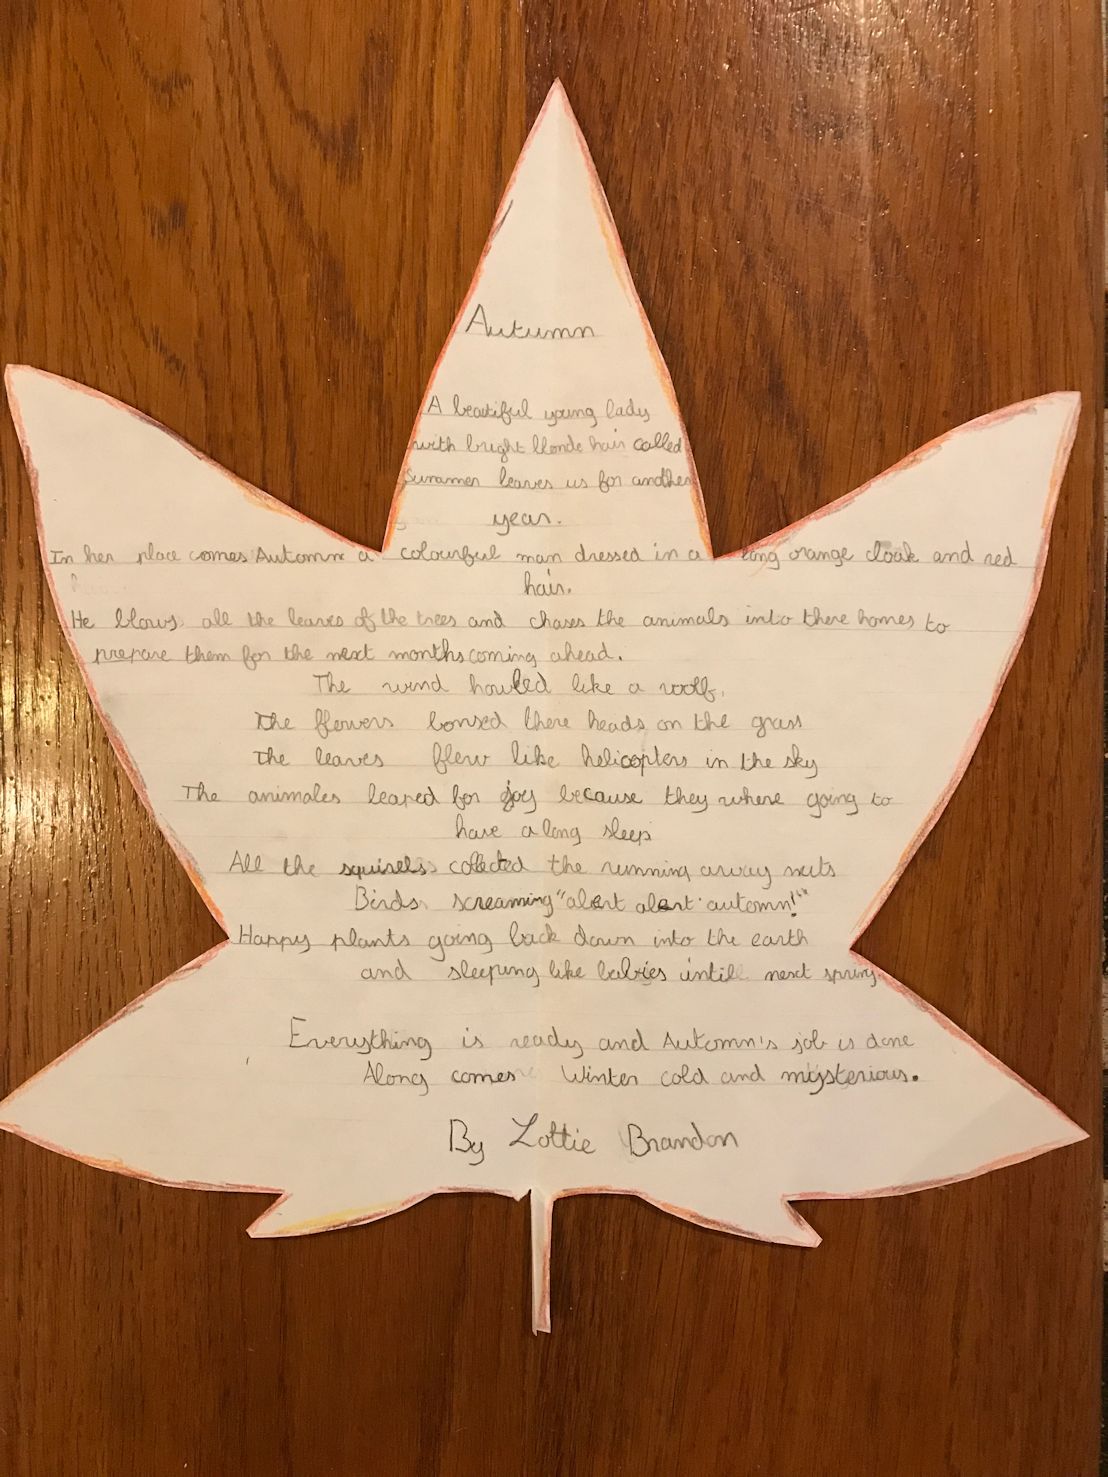 Autumn
A beatiful young lady
with bright blonde hair called
Summer leaves us for another
year.
In her place comes Automn a colourful man dressed in a long orange cloak and red
hair.
He blows all the leaves of the trees and chases the animals into there homes to
prepare them for the next months coming ahead.
The wind howled like a woolf.
The flowers bonsed there heads on the grass
The leaves flew like helicopters in the sky
The animales leaped for joy because they where going to
have a long sleep
All the squirels collected the running away nuts
Birds screaming "alert alert automn!"
Happy plants going back down into the earth
and sleeping like babies intill next spring.
Everything is ready and Automn's job is done
Along comes Winter cold and mysterious.
By Lottie Brandon